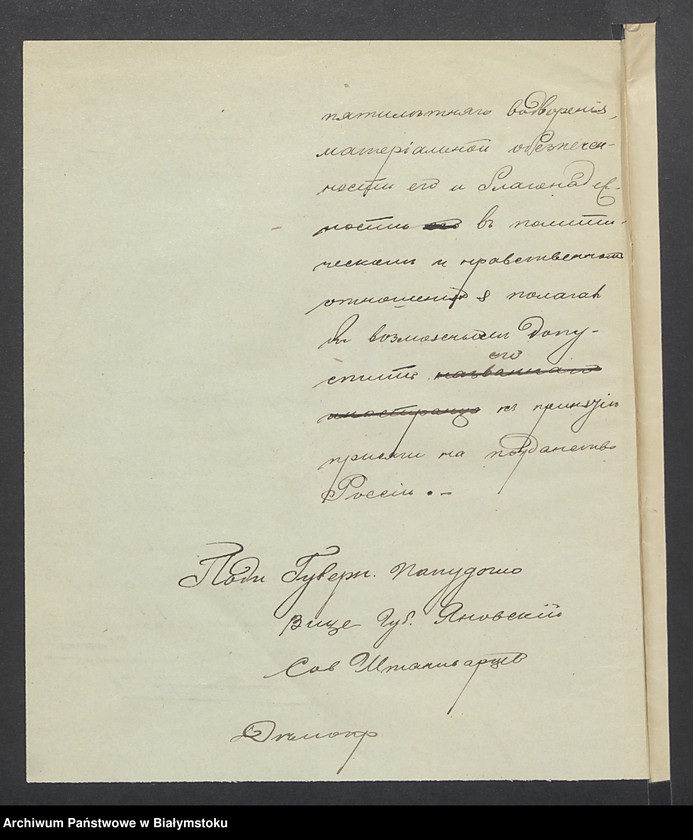 пятилѣтняго водворенія,
матеріальной обезпечен-
ности его и благонадеж-
ностью его въ полити-
ческомъ и нравственномъ
отношеніи я полагалъ
бы возможнымъ допу-
его
стить названнаго
иностранца къ принятію
присяги на подданство
Россіи.-
Подп Губерн.
Вице Губ. Яновскій
Сов